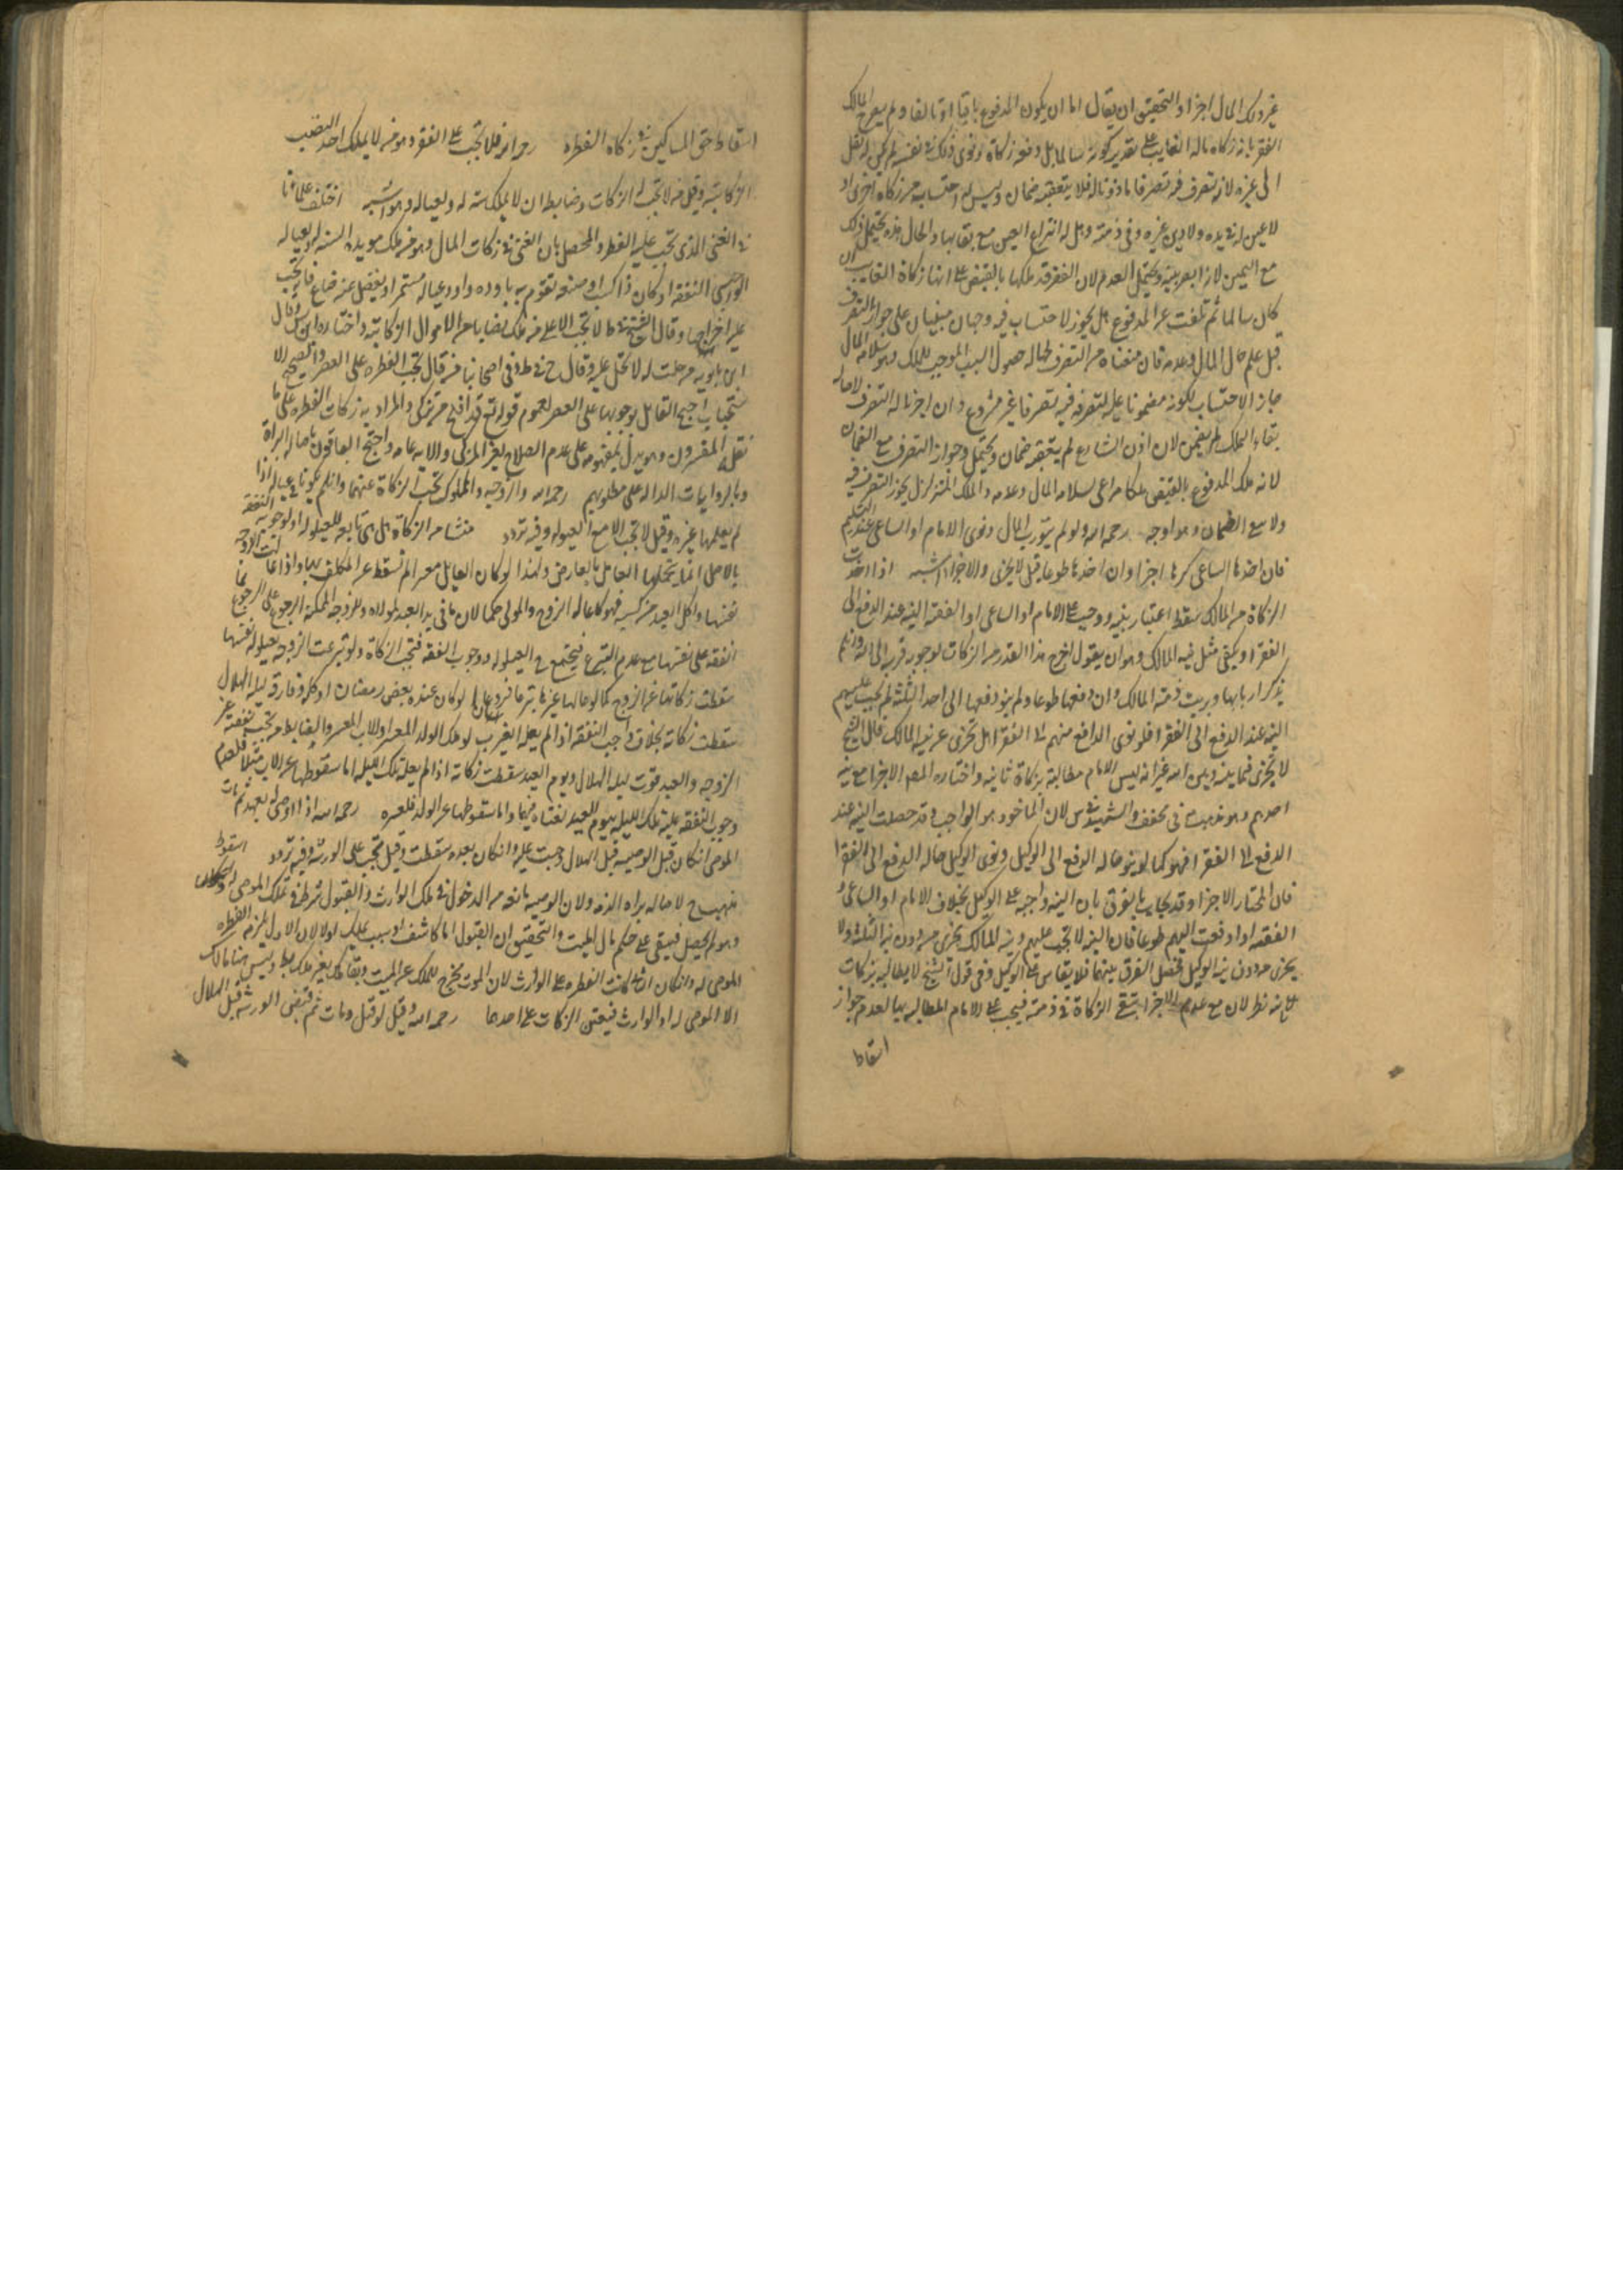 غير ذلك المال اجزا والتحقيق ان يقال اما ان يكون المدفوع باقيا او تالفا ولم يعرف المالك
الفقير بانه زكاه ماله الغايب على تقدير كونه سالما بل دفعه زكاة ونوى ذلك في نفسه لم يكن له نقل
الى غيره لانه تصرف فيه تصرفا ماذونا له فلا يتعقبه ضمان وليس له احتسابه من زكاه اخرى اذ
لا عين له في يده ولا دين غيره وفي ذمته وهل له انتزاع العين مع بقايها والحال هذه يحتمل ذلك
مع اليمين لانه ابصر بنيته ويحتمل العدم لان الفقير قد ملكها بالقبض على انها زكاة الغايب ان
كان سالما ثم تلفت عن المدفوع هل يجوز الاحتساب فيه وجهان مبنيان على جواز التصرف
قبل علم حال المال وعدمه فان منعناه من التصرف لحاله حصول السبب الموجب للملك وهو سلامة المال
جاز الاحتساب لكونه مضمونا عليه لتصرفه فيه تصرفا غير مشروع وان اجزنا له التصرف لاصاله
بقاء الملك لم يضمن لان اذن الشارع لم يتعقبه ضمان ويحتمل وجواز التصرف مع الضمان
لانه ملك المدفوع بالقبض ملكا مراعى لسلامه المال وعدمه والملك المتزلزل يجوز التصرف فيه
ولا مع الضمان وهو اوجه رحمه الله ولو لم ينو رب المال ونوى الامام او الساعى عند التسليم
فان اخذها الساعى كرها اجزا وان اخذها طوعا قيل لا يجزى والاجزا اشبه اذا اخذت
الزكاة من المالك سقط اعتبار نيته ووجبت على الامام او الساعى او الفقيه النيه عند الدفع الى
الفقرا ويكفى مثل نيه المالك وهو ان يقول اخرج هذا القدر من الزكات لوجوبه قربه الى الله وان لم
يذكر اربابها وبريت ذمه المالك وان دفعها طوعا ولم ينو دفعها الى احد الثلثه لم يجب عليهم
النيه عند الدفع الى الفقرا فلو نوى الدافع منهم الى الفقرا هل تجزى عن نيه المالك قال الشيخ
لا تجزى فيما بينه وبين الله غير انه ليس للامام مطالبته بزكاة ثانيه واختار المص الاجزا مع نيه
احدهم وهو مذهب في مختلف والشهيد في س لان الماخوذ هو الواجب وقد حصلت النيه عند
الدفع الى الفقرا فهو كما لو نوى حاله الدفع الى الوكيل ونوى الوكيل حاله الدفع الى الفقرا
فان المختار الاجزا وقد يجاب بالفرق بان النيه واجبه على الوكيل بخلاف الامام او الساعى و
الفقيه اذا دفعت اليهم طوعا فان النيه لا تجب عليهم ونيه المالك تجزى من دون نيه الثلثه ولا
يجزى من دون نيه الوكيل فحصل الفرق بينهما فلا يقاس على الوكيل وفى قول الشيخ لا يطالبه بزكات
ثانيه نظر لان مع عدم الاجزا تبقى الزكاة في ذمته فيجب على الامام المطالبه بها لعدم جواز
اسقاط
اسقاط حق المساكين في زكاه الفطره رحمه الله فلا تجب على الفقير وهو من لا يملك احد النصب
الزكاتيه وقيل من لا تجب له الزكات وضابطه ان لا يملك سنه له ولعياله وهو اشبه اختلف علماؤنا
في الغنى الذى تجب عليه الفطره والمحصل بان الغنى في زكات المال وهو من ملك مونه السنه له ولعياله
الواجبى النفقه او كان ذا كسب او صنعه تقوم به باوده واود عياله مستمرا ويفضل عنه صاع فانه تجب
عليه اخراجها وقال الشيخ في ط لا تجب الا على من ملك نصابا من الاموال الزكاتيه واختاره ابن وقال
ابن بابويه من حلت له لا تحل عليه وقال خ في ط وفى اصحابنا من قال تجب الفطره على الفقير والصحيح
استحباب احتج القايل بوجوبها على الفقير لعموم قوله تع قد افلح من تزكى والمراد به زكات الفطره على ما
نقله المفسرون وهو يدل بمفهومه على عدم الصلاح لغير المزكى والايه عامه واحتج الباقون باصاله البراة
وبالروايات الداله على مطلوبهم رحمه الله والزوجه والمملوك تجب الزكاة عنهما وان لم يكونا في عياله اذا
لم يعلهما غيره وقيل لا تجب الا مع العيلوله وفيه تردد منشا من الزكاة هل هى تابعه للعيلوله او لوجوب النفقه
بالاصل انما يتحملها العامل بالعارض ولهذا لو كان العايل معسر الم تسقط عن المكلف بها واذا عالت الزوجه
نفسها واكل العبد من كسبه فهو كما عاله الزوج والمولى حكما لان ما فى يد العبد لمولاه وللزوجه الممكنه الرجوع على الزوج بما
انفقه على نفسها مع عدم التبرع فيجتمع ح العيلوله ووجوب النفقه فتجب الزكاة ولو تبرعت الزوجه بعيلوله نفسها
سقطت زكاتها عن الزوج كما لو عالها غيرها تبرعا فرعان لو كان عنده بعض رمضان او كله وفارق ليله الهلال
سقطت زكاته بخلاف واجب النفقه اذا لم يعله الغير ب لو ملك الولد المعسر او الاب المعسر والضابط من تجب نفقته غير
الزوجه والعبد قوت ليله الهلال ويوم العيد سقطت زكاته اذا لم يعله تلك الليله اما سقوطها عن الاب مثلا فلعدم
وجوب النفقه عليه تلك الليله بيوم العيد لغناه فيهما واما سقوطها عن الولد فلعسره رحمه الله اذا اوصى له بعبد ثم مات
الموصى ان كان قبل الوصيه قبل الهلال وجبت عليه وان كان بعده سقطت وقيل تجب على الورثه وفيه تردد
لاصاله براه الذمه ولان الوصيه مانعه من الدخول في ملك الوارث والقبول شرط في تملك الموصى له
وهو لم يحصل فيبقى على حكم مال الميت والتحقيق ان القبول اما كاشف او سبب ملك او لا لان الاول يلزمه الفطره
الموصى له وان كان الثانى كانت الفطره على الوارث لان الموت مخرج للملك عن الميت وبقا ملك بغير مالك وليس هنا مالك
الا الموصى له او الوارث فيتعين الزكات على احدهما رحمه الله وقيل لو قبل ومات ثم قبض الورثه قبل الهلال